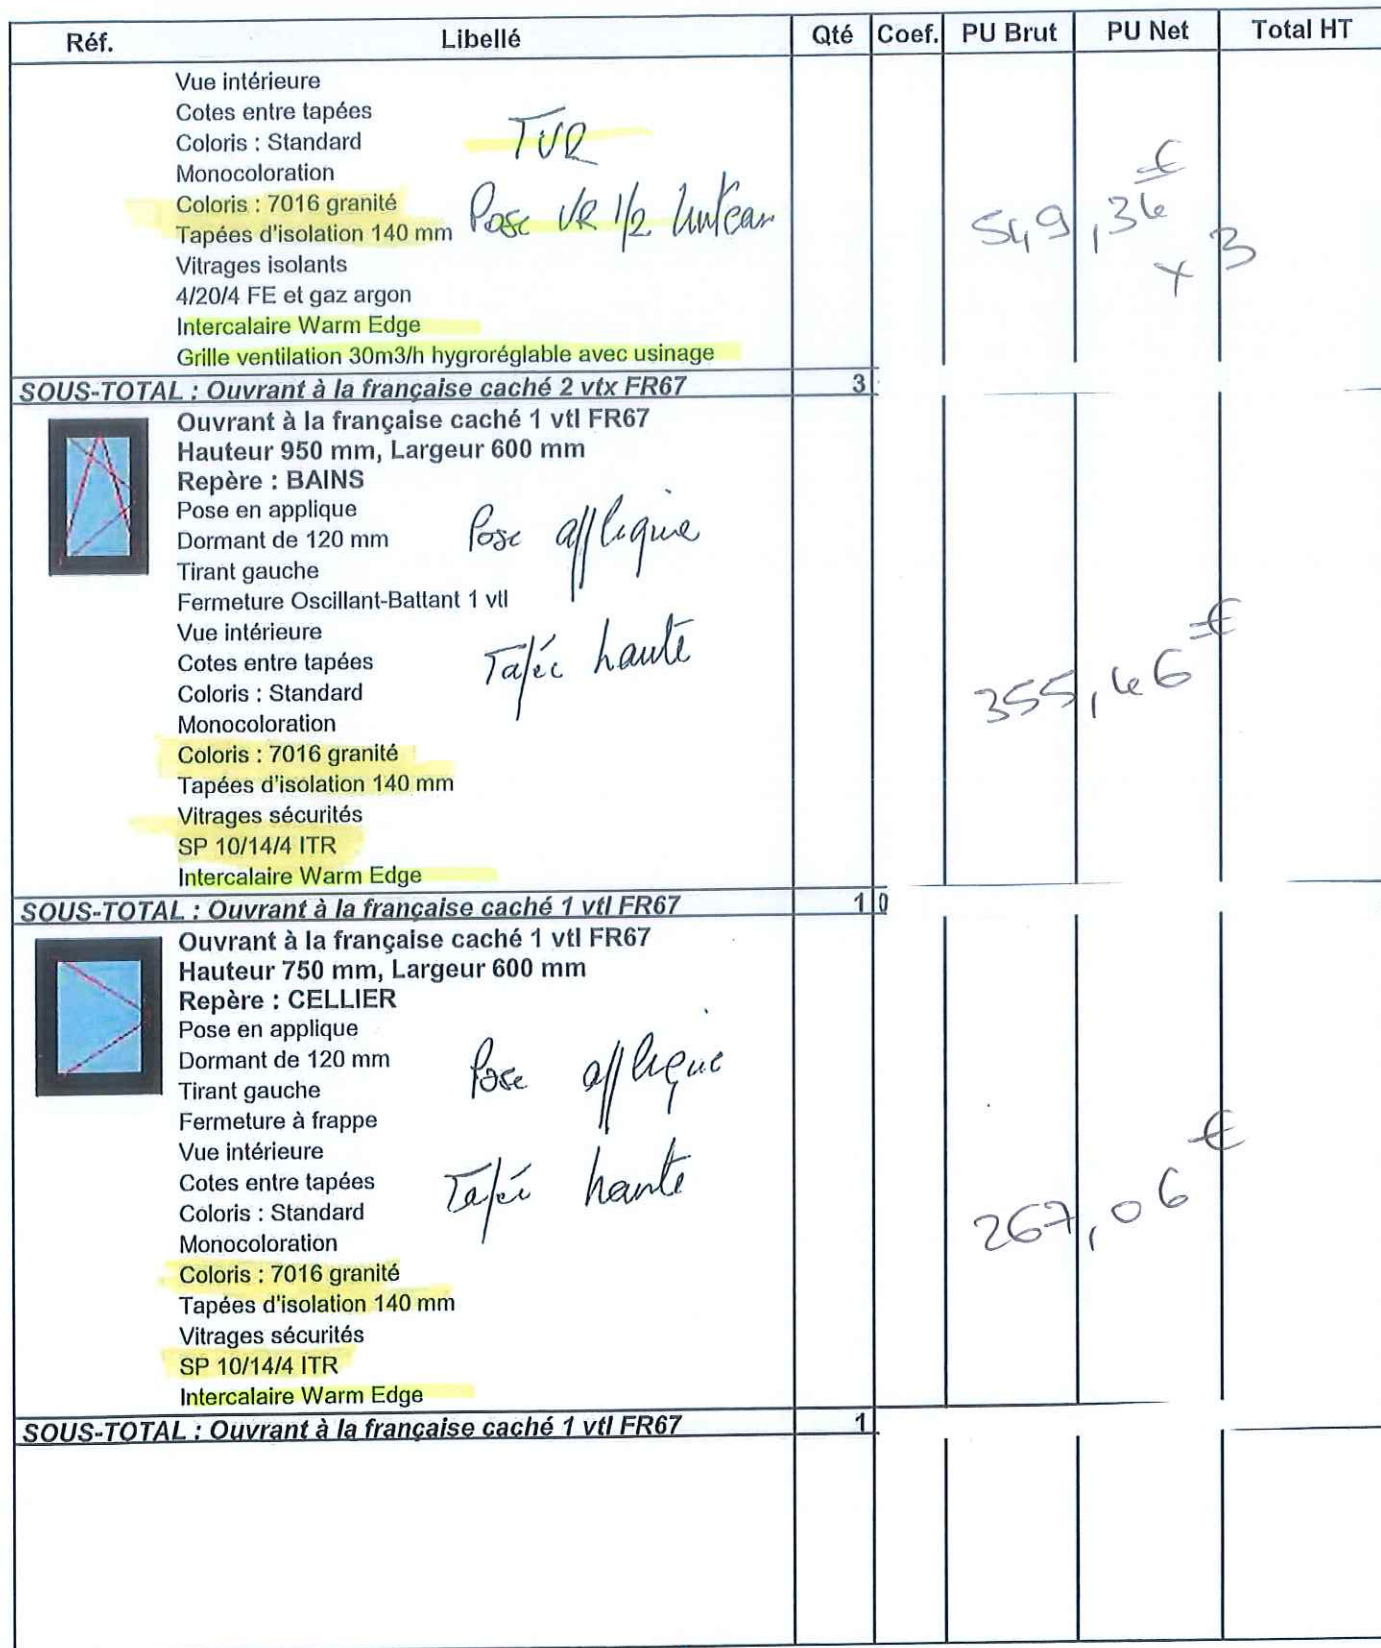 Réf. Libellé Qté Coef. PU Brut PU Net Total HT
Vue intérieure
Cotes entre tapées
Coloris : Standard
TVR
Monocoloration
Coloris : 7016 granité
Pose VR 1/2 linteau
Tapées d'isolation 140 mm
549,34 €
x 3
Vitrages isolants
4/20/4 FE et gaz argon
Intercalaire Warm Edge
Grille ventilation 30m3/h hygroréglable avec usinage
SOUS-TOTAL : Ouvrant à la française caché 2 vtx FR67 3
Ouvrant à la française caché 1 vtl FR67
Hauteur 950 mm, Largeur 600 mm
Repère : BAINS
Pose en applique
Dormant de 120 mm
Pose applique
Tirant gauche
Fermeture Oscillant-Battant 1 vtl
Vue intérieure
Cotes entre tapées
Tapée haute
Coloris : Standard
355,46 €
Monocoloration
Coloris : 7016 granité
Tapées d'isolation 140 mm
Vitrages sécurités
SP 10/14/4 ITR
Intercalaire Warm Edge
SOUS-TOTAL : Ouvrant à la française caché 1 vtl FR67 1 0
Ouvrant à la française caché 1 vtl FR67
Hauteur 750 mm, Largeur 600 mm
Repère : CELLIER
Pose en applique
Dormant de 120 mm
Pose applique
Tirant gauche
Fermeture à frappe
Vue intérieure
Cotes entre tapées
Tapée haute
Coloris : Standard
267,06 €
Monocoloration
Coloris : 7016 granité
Tapées d'isolation 140 mm
Vitrages sécurités
SP 10/14/4 ITR
Intercalaire Warm Edge
SOUS-TOTAL : Ouvrant à la française caché 1 vtl FR67 1